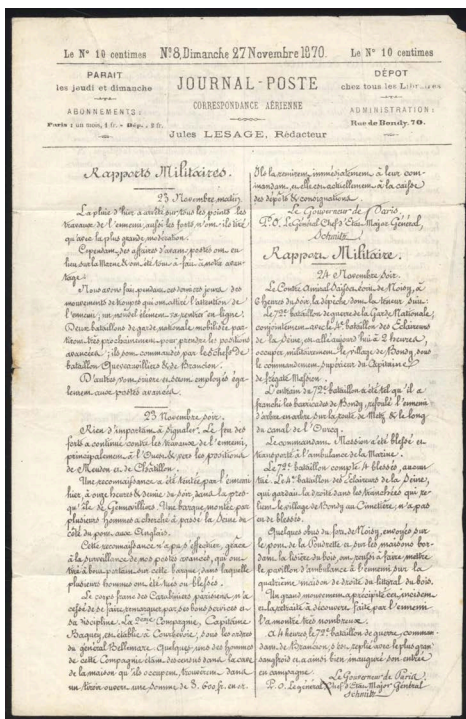 Le Nº 10 centimes
Nº 8, Dimanche 27 Novembre 1870.
Le Nº 10 centimes
PARAIT
les jeudi et dimanche
ABONNEMENTS:
Paris: un mois, 1 fr. - Dép., 2 fr.
JOURNAL-POSTE
CORRESPONDANCE AÉRIENNE
Jules LESAGE, Rédacteur
DÉPOT
chez tous les Libraires
ADMINISTRATION:
Rue de Bondy, 70.
Rapports Militaires.
23 Novembre, matin.
La pluie d'hier a arrêté sur tous les points les
travaux de l'ennemi, aussi les forts n'ont-ils tiré
qu'avec la plus grande modération.
Cependant, des affaires d'avant-postes ont eu
lieu sur la Marne & ont été tout-à-fait à notre avan-
tage.
Nous avons fait, pendant ces derniers jours, des
mouvements de troupes qui ont attiré l'attention de
l'ennemi; un nouvel élément va entrer en ligne:
Deux bataillons de garde nationale mobilisée par-
tiront très prochainement pour prendre les positions
avancées; ils sont commandés par les Chefs de
bataillon Queveauvilliers & de Brancion.
D'autres vont suivre et seront employés éga-
lement aux postes avancés.
23 Novembre soir.
Rien d'important à signaler. Le feu des
forts a continué contre les travaux de l'ennemi,
principalement à l'Ouest & vers les positions
de Meudon et de Châtillon.
Une reconnaissance a été tentée par l'ennemi
hier, à onze heures & demie du soir, dans la pres-
qu'île de Gennevilliers. Une barque, montée par
plusieurs hommes a cherché à passer la Seine du
côté du pont aux Anglais.
Cette reconnaissance n'a pu s'effectuer, grâce
à la surveillance de nos postes avancés, qui ont
tiré à bout portant sur cette barque, dans laquelle
plusieurs hommes ont été tués ou blessés.
Le corps franc des Carabiniers parisiens, n'a
cessé de se faire remarquer par ses bons services et
sa discipline. La 2ème Compagnie, Capitaine
Baquey, est établie à Courbevoie, sous les ordres
du général Bellemare. Quelques-uns des hommes
de cette Compagnie étant descendus dans la cave
de la maison qu'ils occupent, trouvèrent dans
un tiroir ouvert une somme de 3.600 fr. en or.
Ils la remirent immédiatement à leur com-
mandant, et elle est actuellement à la caisse
des dépôts & consignations.
Le Gouverneur de Paris,
P.O. Le Général Chef d'Etat-Major Général,
Schmitz
Rapport Militaire.
24 Novembre soir.
Le Contre Amiral Saisset, écrit de Noisy, à
6 heures du soir, la dépêche dont la teneur suit:
Le 72e bataillon de guerre de la Garde Nationale,
conjointement avec le 4e bataillon des Eclaireurs
de la Seine, est allé aujourd'hui à 2 heures,
occuper militairement le village de Bondy, sous
le commandement supérieur du Capitaine
de frégate Massion.
L'entrain du 72e bataillon a été tel qu'il a
franchi les barricades de Bondy, refoulé l'ennemi
d'arbre en arbre sur la route de Metz & le long
du canal de l'Ourcq.
Le commandant Massion a été blessé et
transporté à l'ambulance de la Marine.
Le 72e bataillon compte 4 blessés, aucun
tué. Le 4e bataillon des Eclaireurs de la Seine,
qui gardait la droite dans les tranchées qui re-
lient le village de Bondy au Cimetière, n'a pas
eu de blessés.
Quelques obus du fort de Noisy, envoyés sur
le pont de la Poudrette et sur les maisons bor-
dant la lisière du bois, ont réussi à faire mettre
le pavillon d'ambulance à l'ennemi sur la
quatrième maison de droite du littoral du bois.
Un grand mouvement a précipité cet incident
et la retraite à découvert faite par l'ennemi
l'a montré très nombreux.
A 4 heures, le 72e bataillon de guerre, comman-
dant de Brancion, s'est replié avec le plus grand
sangfroid et a ainsi bien inauguré son entrée
en campagne.
Le Gouverneur de Paris
P.O. Le général, Chef d'Etat-Major Général
Schmitz